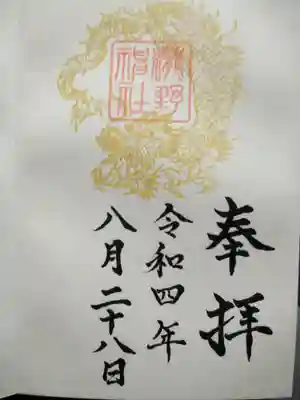 野
神社
奉拝
令和四年
八月二十八日